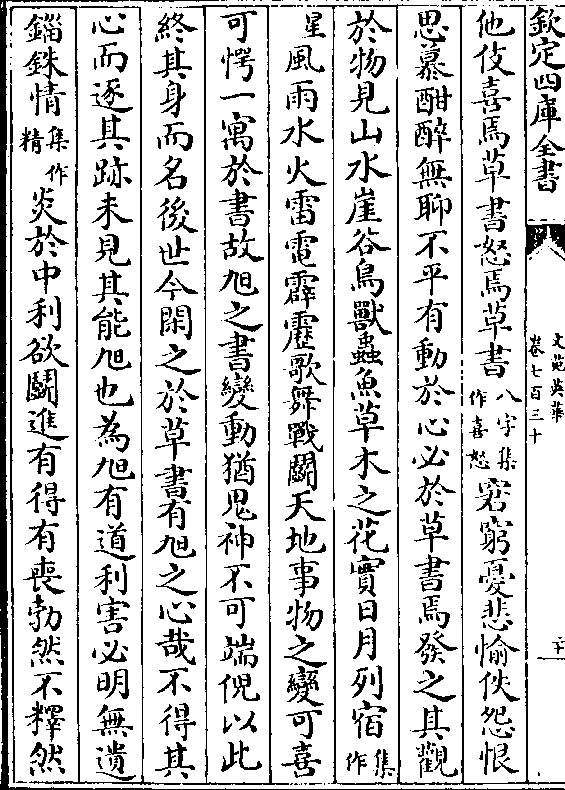 欽定四庫全書
文苑英華
卷七百三十
二十一
他伎喜焉草書怒焉草書八字集作喜怒窘窮憂悲愉佚怨恨
思慕酣醉無聊不平有動於心必於草書焉發之其觀
於物見山水崖谷鳥獸蟲魚草木之花實日月列宿集作
星風雨水火雷電霹靂歌舞戰鬭天地事物之變可喜
可愕一寓於書故旭之書變動猶鬼神不可端倪以此
終其身而名後世今閑之於草書有旭之心哉不得其
心而逐其跡未見其能旭也為旭有道利害必明無遺
錙銖情集作精炎於中利欲鬭進有得有喪勃然不釋然